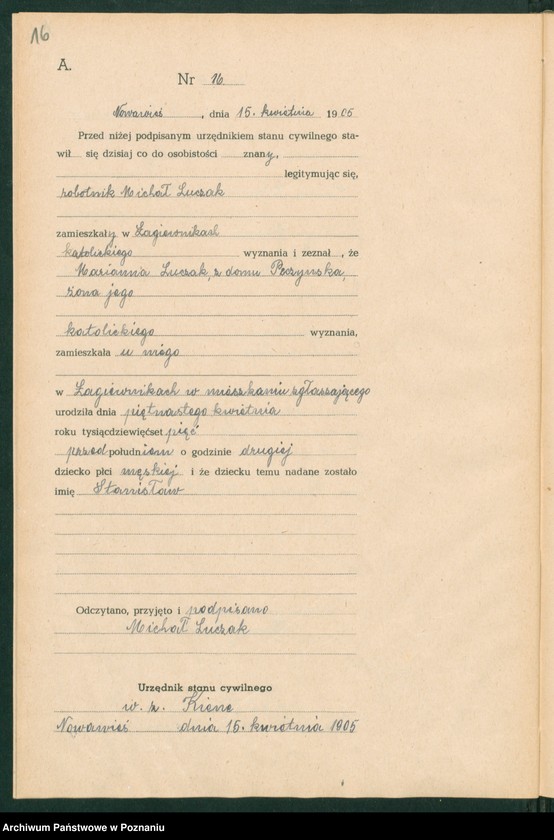 16
A.
Nr 16
Nowawieś, dnia 15. kwietnia 1905
Przed niżej podpisanym urzędnikiem stanu cywilnego sta-
wił się dzisiaj co do osobistości znany,
legitymując się,
robotnik Michał Luczak
zamieszkały w Łagiewnikach
katolickiego wyznania i zeznał, że
Marianna Luczak, z domu
żona jego
katolickiego wyznania,
zamieszkała u niego
w Łagiewnikach w mieszkaniu zgłaszającego
urodziła dnia piętnastego kwietnia
roku tysiącdziewięćset pięć
przed południem o godzinie drugiej
dziecko płci męskiej i że dziecku temu nadane zostało
imię Stanisław
Odczytano, przyjęto i podpisano
Michał Luczak
Urzędnik stanu cywilnego
w. z. Kiene
Nowawieś dnia 15. kwietnia 1905
Archiwum Państwowe w Poznaniu